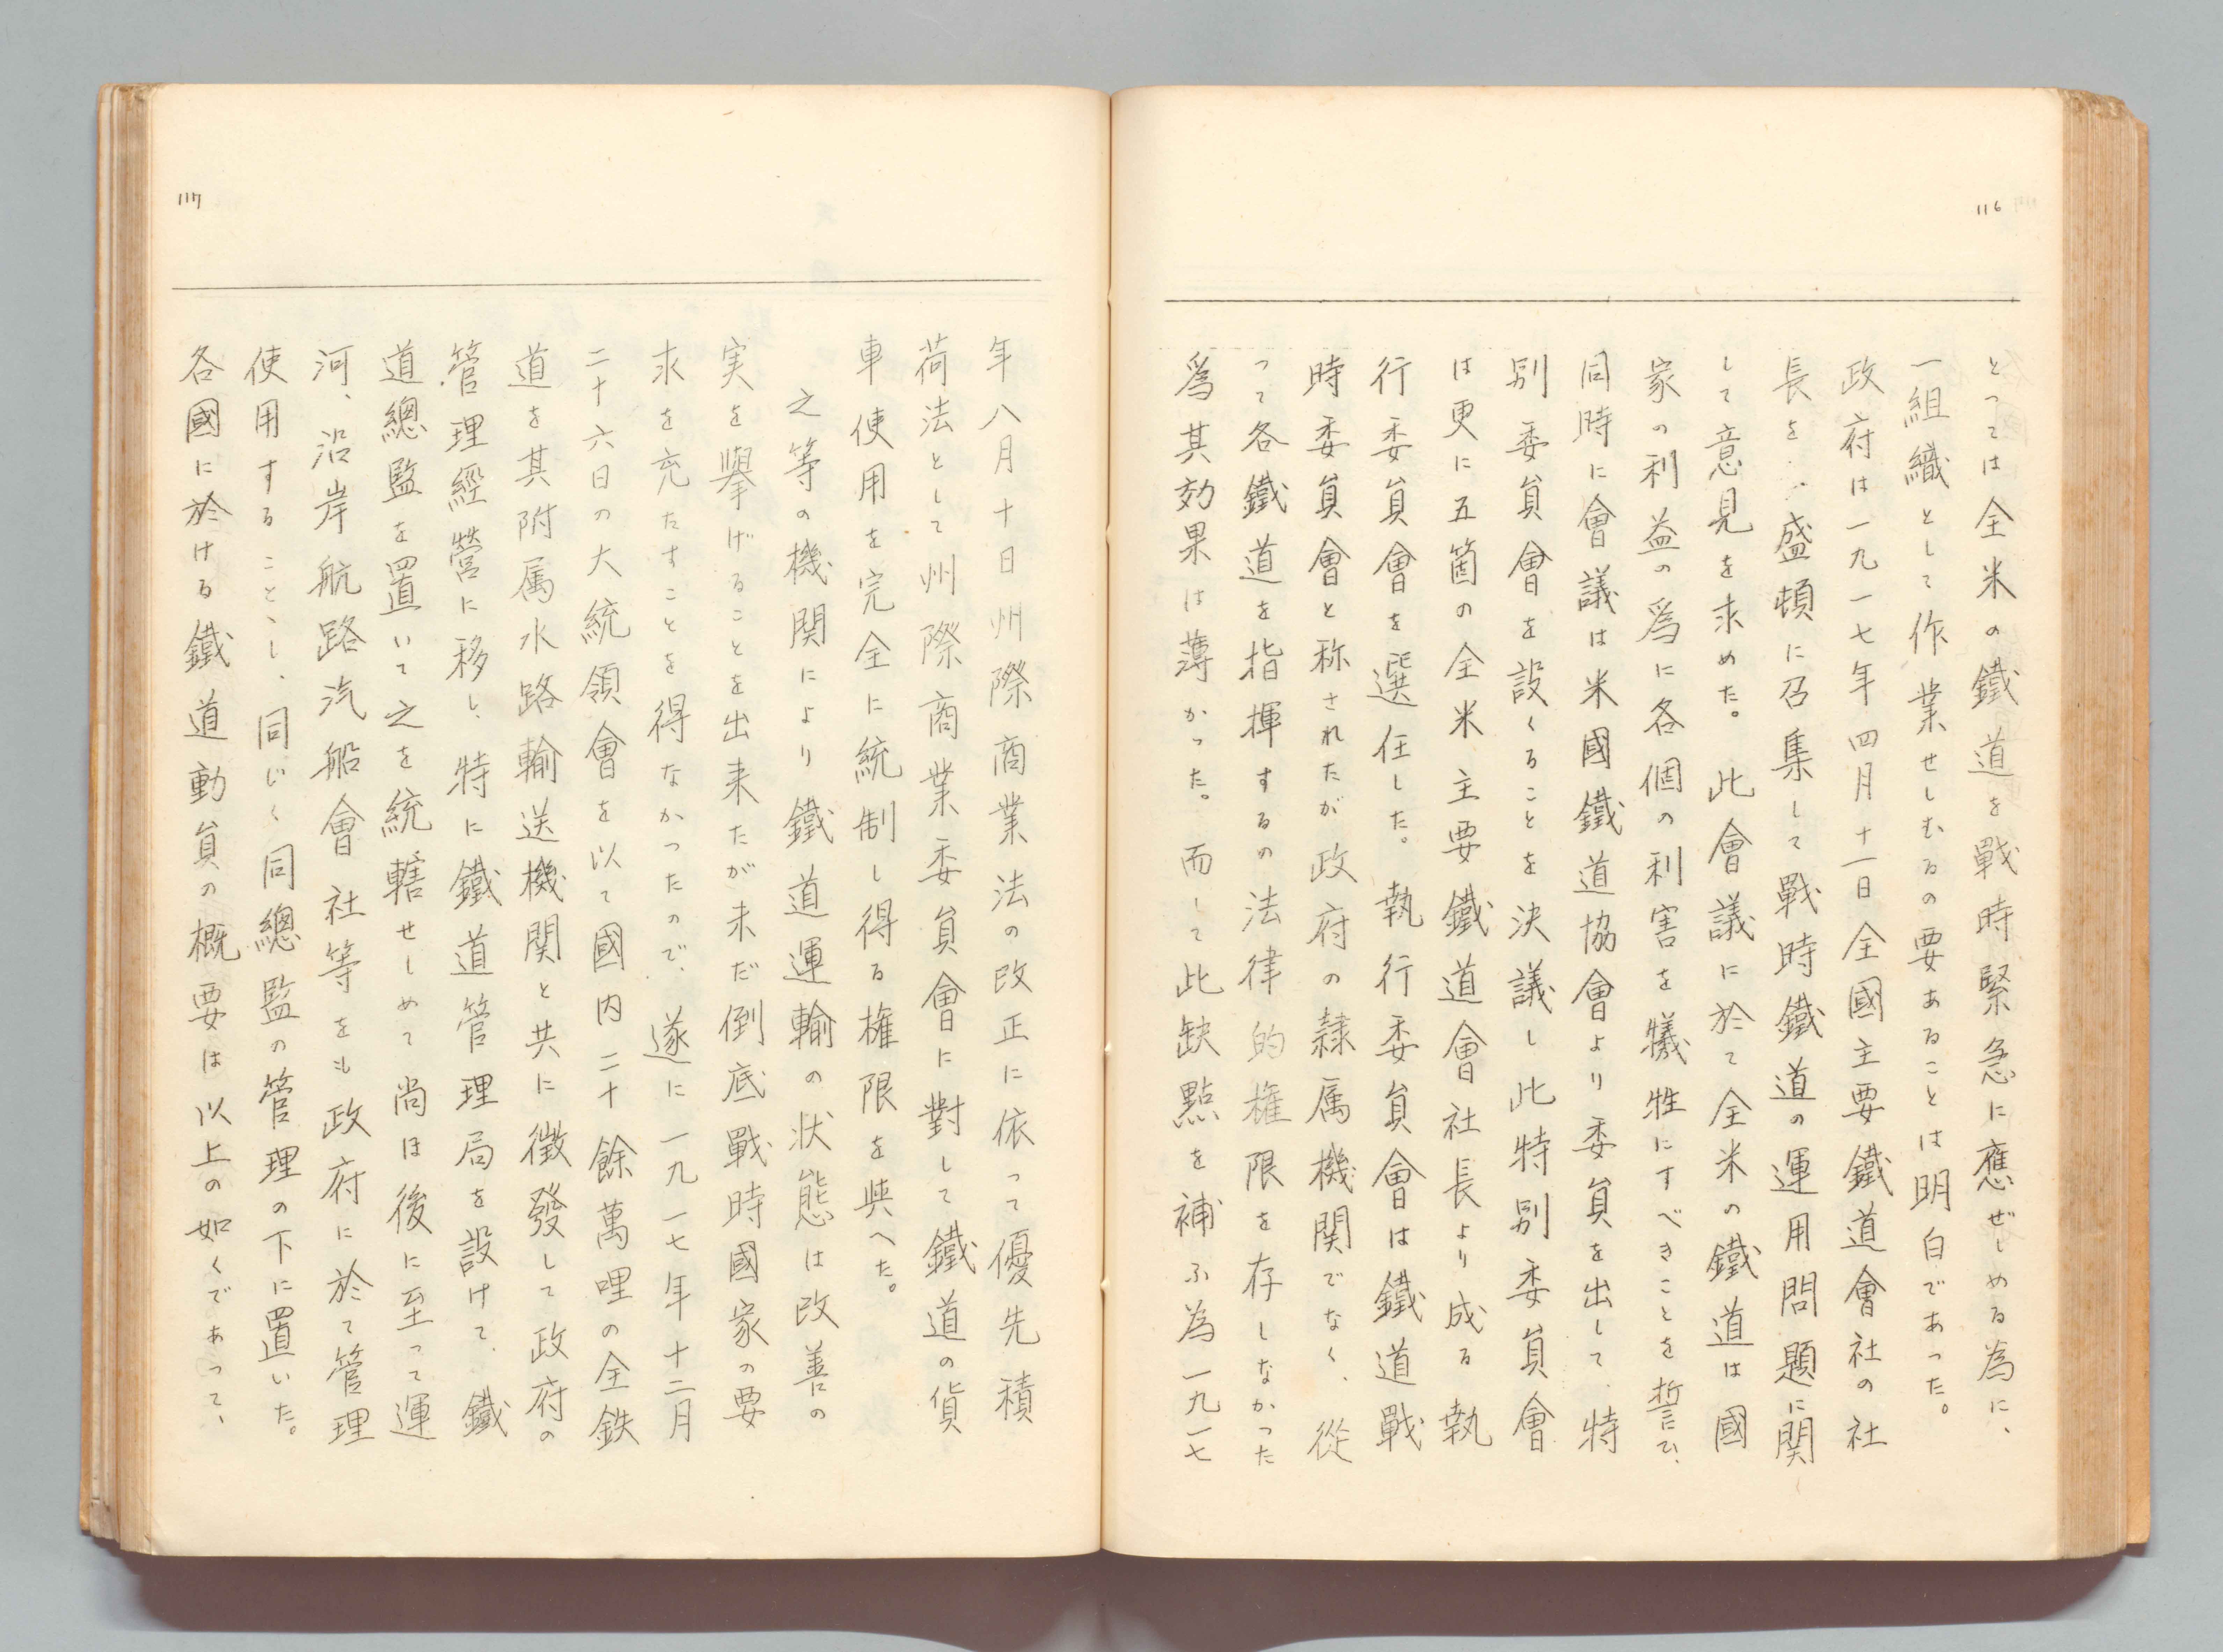 116
とっては全米の鐵道を戰時緊急に應ぜしめる為に、
一組織として作業せしむるの要あることは明白であった。
政府は一九一七年四月十一日全國主要鐵道會社の社
長を盛頓に召集して戰時鐵道の運用問題に関
して意見を求めた。此會議に於て全米の鐵道は國
家の利益の爲に各個の利害を犠牲にすべきことを誓ひ、
同時に會議は米國鐵道協會より委員を出して、特
別委員會を設くることを決議し此特別委員會
は更に五箇の全米主要鐵道會社長より成る執
行委員會を選任した。執行委員會は鐵道戰
時委員會と称されたが政府の隷属機関でなく、從
って各鐵道を指揮するの法律的権限を存しなかった
爲其効果は薄かった。而して此缺點を補ふ為一九一七
117
年八月十日州際商業法の改正に依って優先積
荷法として州際商業委員會に對して鐵道の貨
車使用を完全に統制し得る権限を與へた。
之等の機関により鐵道運輸の状態は改善の
実を擧げることを出来たが未だ倒底戰時國家の要
求を充たすことを得なかったので、遂に一九一七年十二月
二十六日の大統領會を以て國内二十餘萬哩の全鉄
道を其附属水路輸送機関と共に徴發して政府の
管理經營に移し、特に鐵道管理局を設けて、鐵
道總監を置いて之を統轄せしめて尚ほ後に至って運
河、沿岸航路汽船會社等をも政府に於て管理
使用することゝし、同じく同總監の管理の下に置いた。
各國に於ける鐵道動員の概要は以上の如くであって、